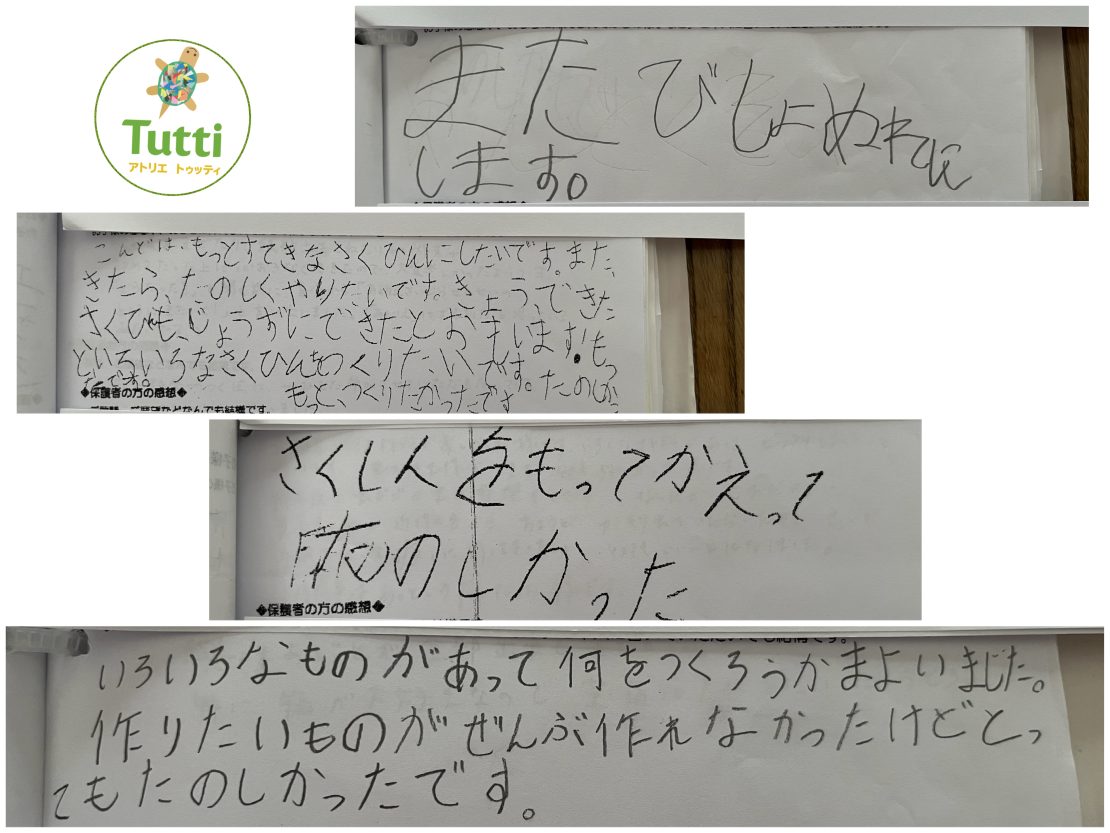 Tutti
アトリエ トゥッティ
また びしょぬれに
します。
こんどは、もっとすてきなさくひんにしたいです。また、
きたら、たのしくやりたいです。きょう、できた
さくひんも、じょうずにできたとおもいます!もっ
といろいろなさくひんをつくりたいです。たのしかっ
たです。
もっと、つくりたかったです
◆保護者の方の感想◆
さくしんをもってかえって
たのしかった
◆保護者の方の感想◆
いろいろなものがあって何をつくろうかまよいました。
作りたいものがぜんぶ作れなかったけどとっ
てもたのしかったです。